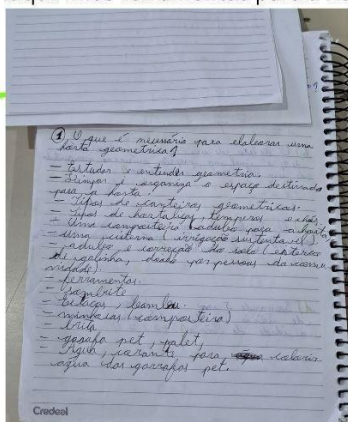 ① O que é necessário para elaborar uma
horta geométrica?
- Estudar e entender geometria.
- Limpar e organizar o espaço destinado
para a horta.
- Tipos de canteiros geométricos.
- Tipos de hortaliças, temperos e chás
- Uma composteira (adubo para a horta)
- uma cisterna (irrigação sustentável)
- adubo e correção do solo (esterco
de galinha, doado por pessoas da comu
nidade).
- ferramentas.
- sombrite
- Estacas, bambu.
- minhocas (composteira)
- brita
- garrafa pet, palet,
- Água, corante, para colorir
água das garrafas pet.
Credeal